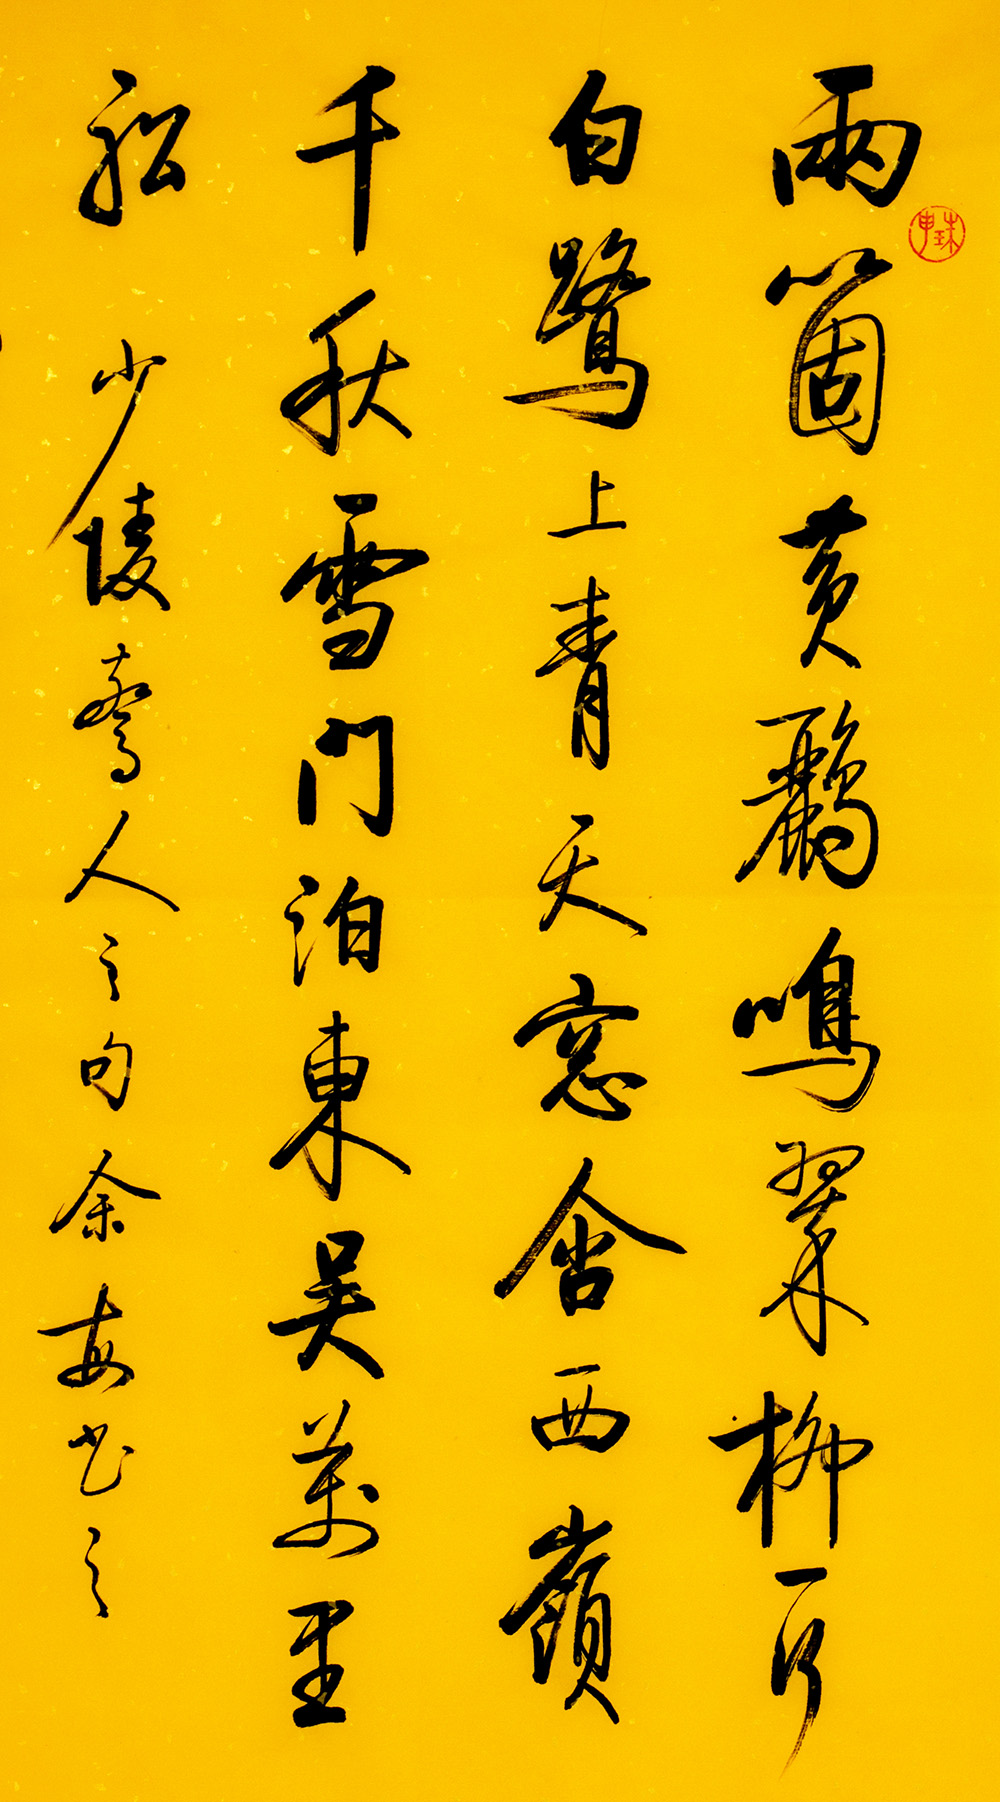 兩箇黃鸝鳴翠柳一行
白鷺上青天窓含西嶺
千秋雪門泊東吳萬里
船 少陵驚人之句余每书之